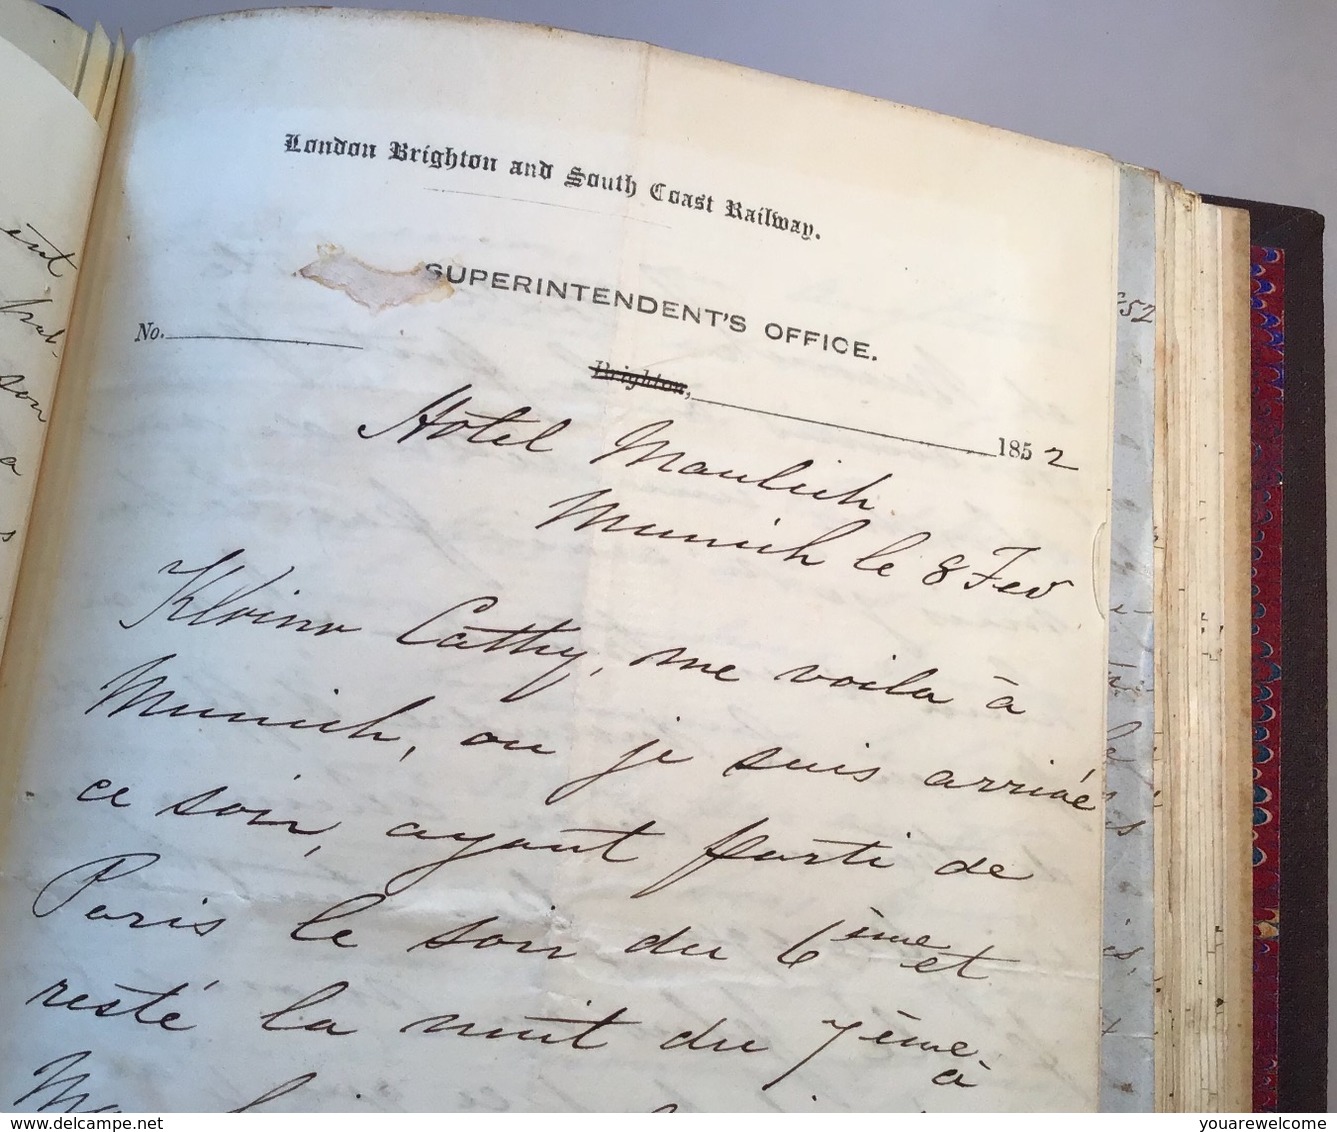 London Brighton and South Coast Railway.
SUPERINTENDENT'S OFFICE.
No.
Brighton, 1852
Hôtel Maulich
Munich le 8 Fev
Cathy, me voila à
Munich, ou je suis arrivé
ce soir, ayant parti de
Paris le soir du 6ème et
resté la nuit du 7ème à
ent
son
a
s
52
delcampe.net
youarewelcome